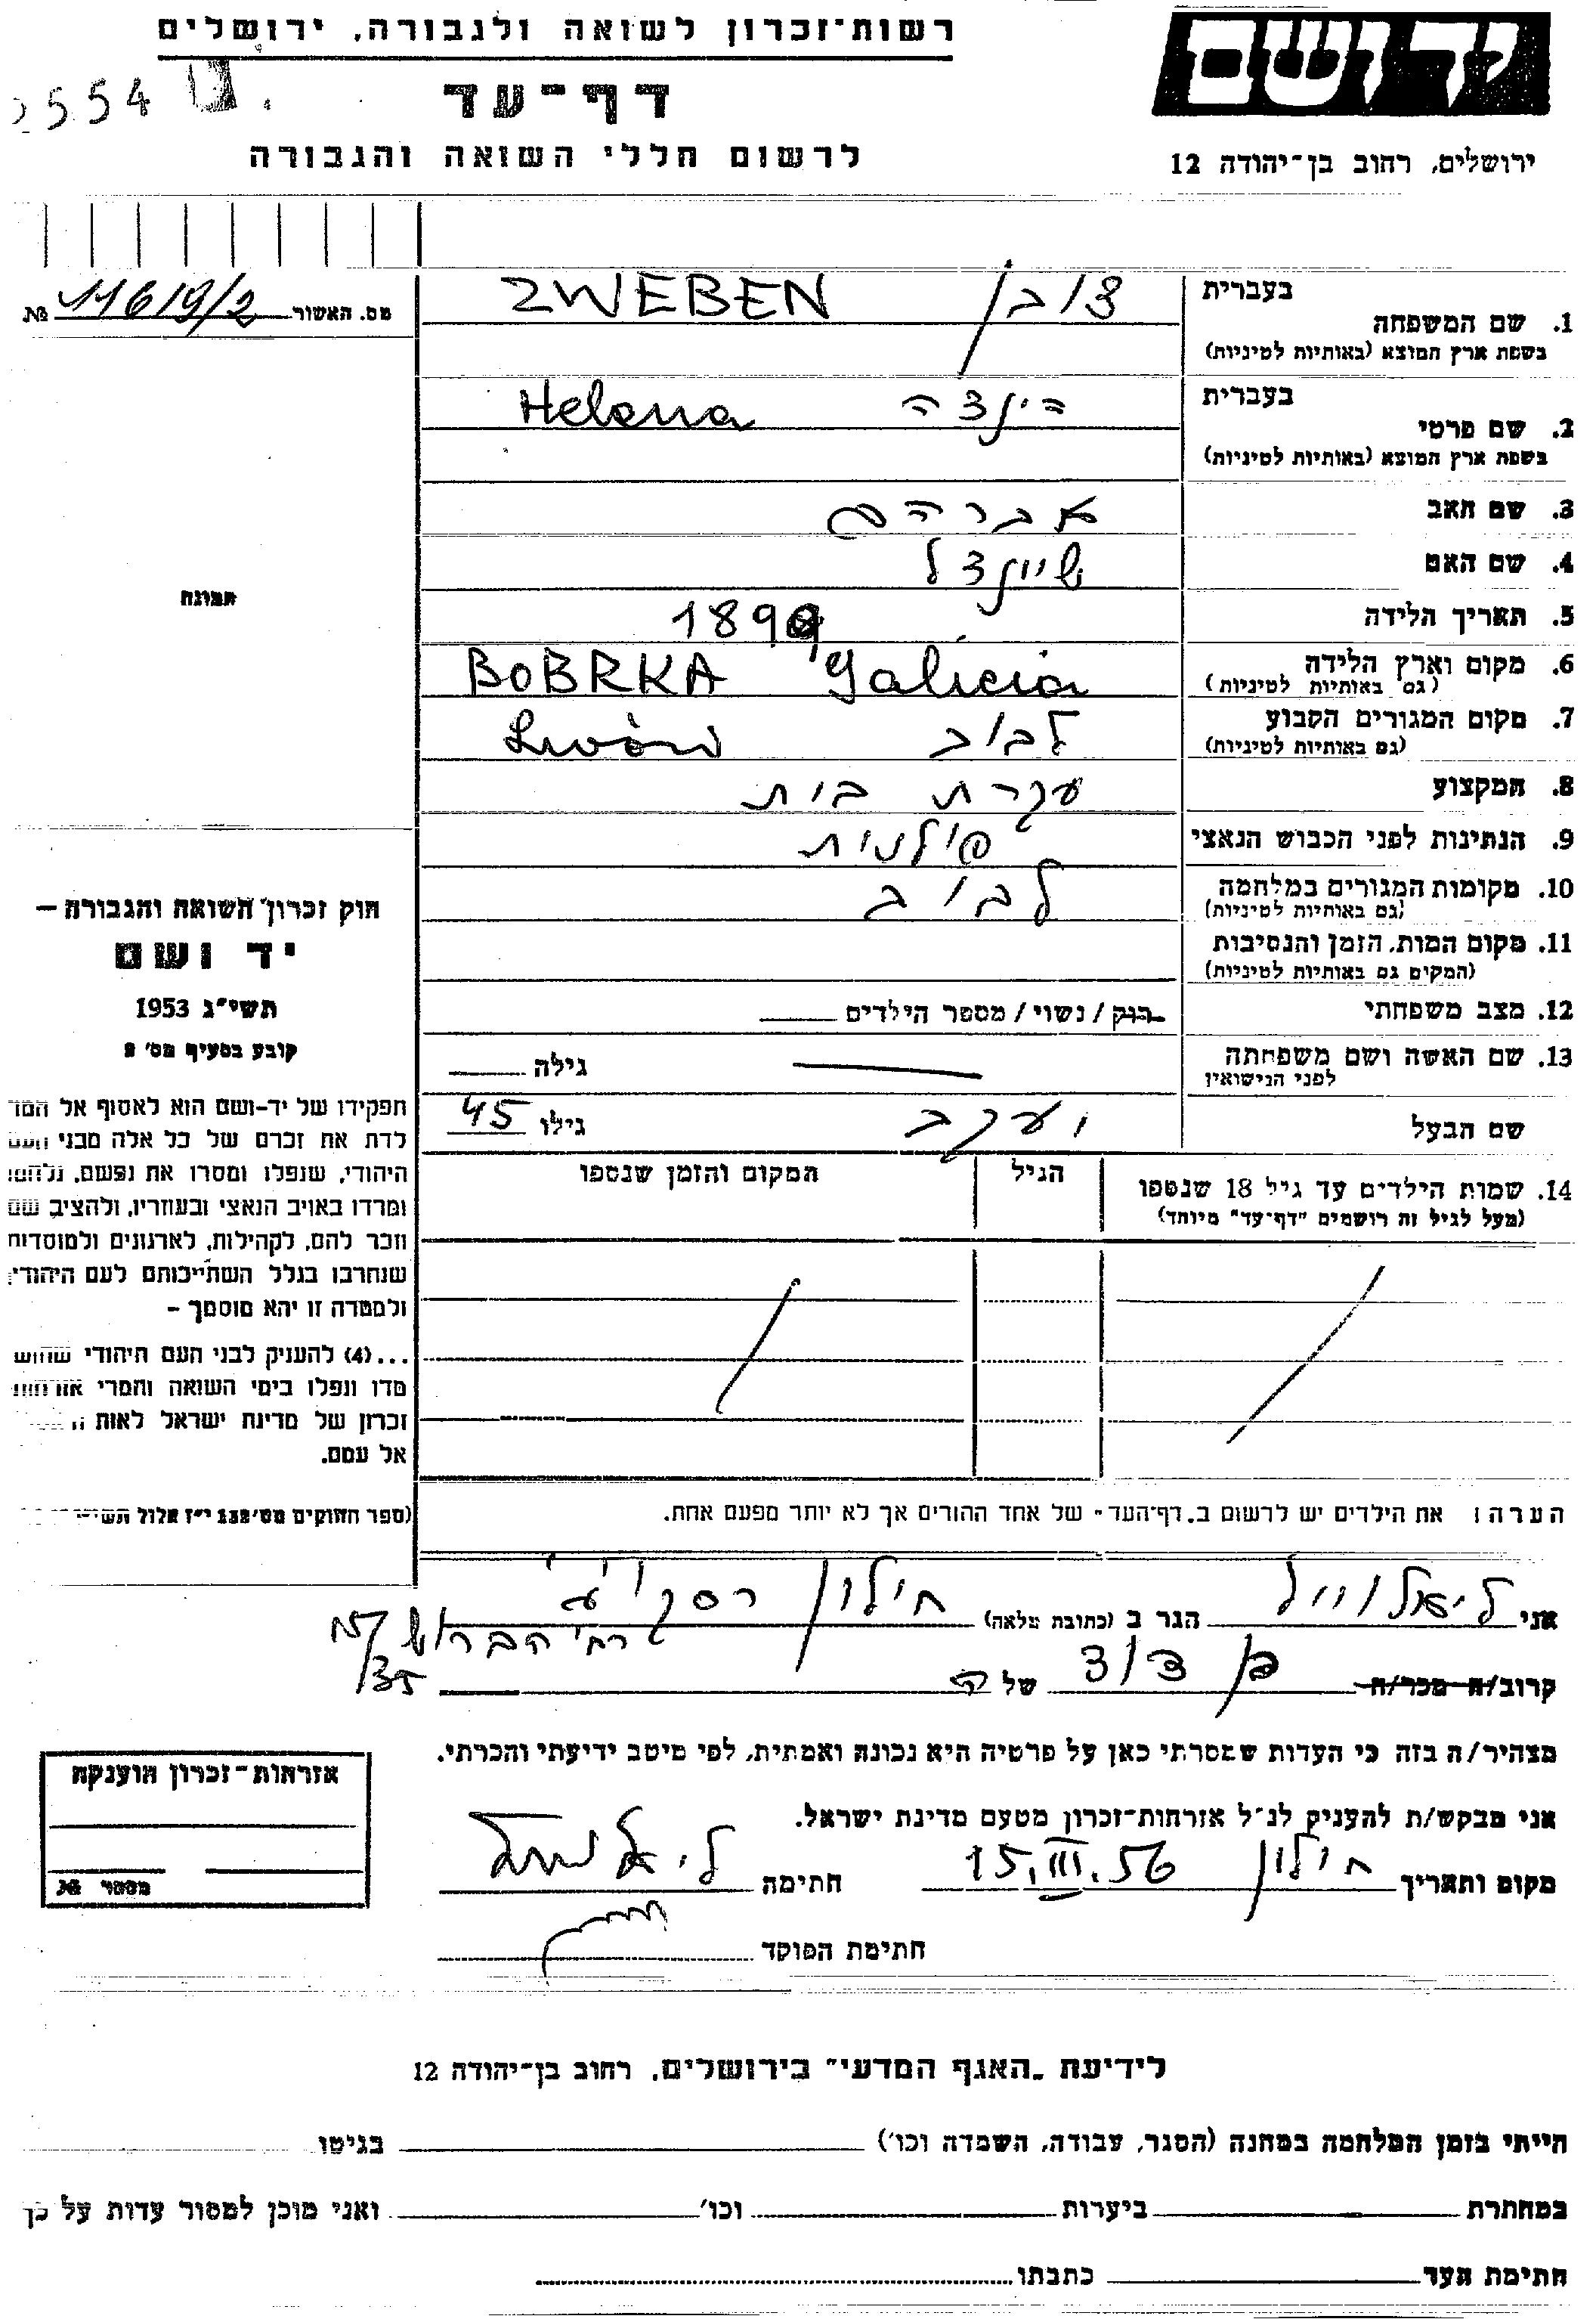 רשות־זכרון לשואה ולגבורה, ירושלים
יד ושם
554
דף־עד
לרשום חללי השואה והגבורה
ירושלים, רחוב בן־יהודה 12
מס. האשור 11619/2 №
בעברית
1. שם המשפחה ZWEBEN
בשפת ארץ המוצא (באותיות לטיניות)
בעברית
2. שם פרטי הינצה Helena
בשפת ארץ המוצא (באותיות לטיניות)
3. שם האב אברהם
4. שם האם שיינצל
תמונה
5. תאריך הלידה
6. מקום וארץ הלידה BOBRKA Galicia
(גם באותיות לטיניות)
7. מקום המגורים הקבוע לבוב Lwów
(גם באותיות לטיניות)
8. המקצוע עקרת בית
9. הנתינות לפני הכבוש הנאצי פולנית
10. מקומות המגורים במלחמה לבוב
(גם באותיות לטיניות)
11. מקום המות, הזמן והנסיבות
(המקום גם באותיות לטיניות)
12. מצב משפחתי רווק / נשוי / מספר הילדים
13. שם האשה ושם משפחתה גילה
לפני הנישואין
שם הבעל יעקב גילו 45
14. שמות הילדים עד גיל 18 שנספו הגיל המקום והזמן שנספו
(מעל לגיל זה רושמים "דף־עד" מיוחד)
חוק זכרון השואה והגבורה –
יד ושם
תשי"ג 1953
קובע בסעיף מס'
תפקידו של יד-ושם הוא לאסוף אל
לדת את זכרם של כל אלה מבני העם
היהודי, שנפלו ומסרו את נפשם, נלחמו
ומרדו באויב הנאצי ובעוזריו, ולהציב שם
וזכר להם, לקהילות, לארגונים ולמוסדות
שנחרבו בגלל השתייכותם לעם היהודי,
ולמטרה זו יהא מוסמך –
...(4) להעניק לבני העם היהודי
מדו ונפלו בימי השואה והמרי
זכרון של מדינת ישראל לאות
אל עמם.
(ספר החוקים מס' 132 י"ז אלול
הערה: את הילדים יש לרשום ב„דף־העד" של אחד ההורים אך לא יותר מפעם אחת.
אני הגר ב (כתובת מלאה) חילון
35
קרוב/ה מכר/ה של
מצהיר/ה בזה כי העדות שמסרתי כאן על פרטיה היא נכונה ואמתית, לפי מיטב ידיעתי והכרתי.
אני מבקש/ת להעניק לנ"ל אזרחות־זכרון מטעם מדינת ישראל.
מקום ותאריך חילון 15.III.56 חתימה
חתימת הפוקד
אזרחות־זכרון הוענקה
מספר №
לידיעת „האגף המדעי" בירושלים, רחוב בן־יהודה 12
הייתי בזמן המלחמה במחנה (הסגר, עבודה, השמדה וכו') בגיטו
במחתרת ביערות וכו' ואני מוכן למסור עדות על כך
חתימת העד כתבתו